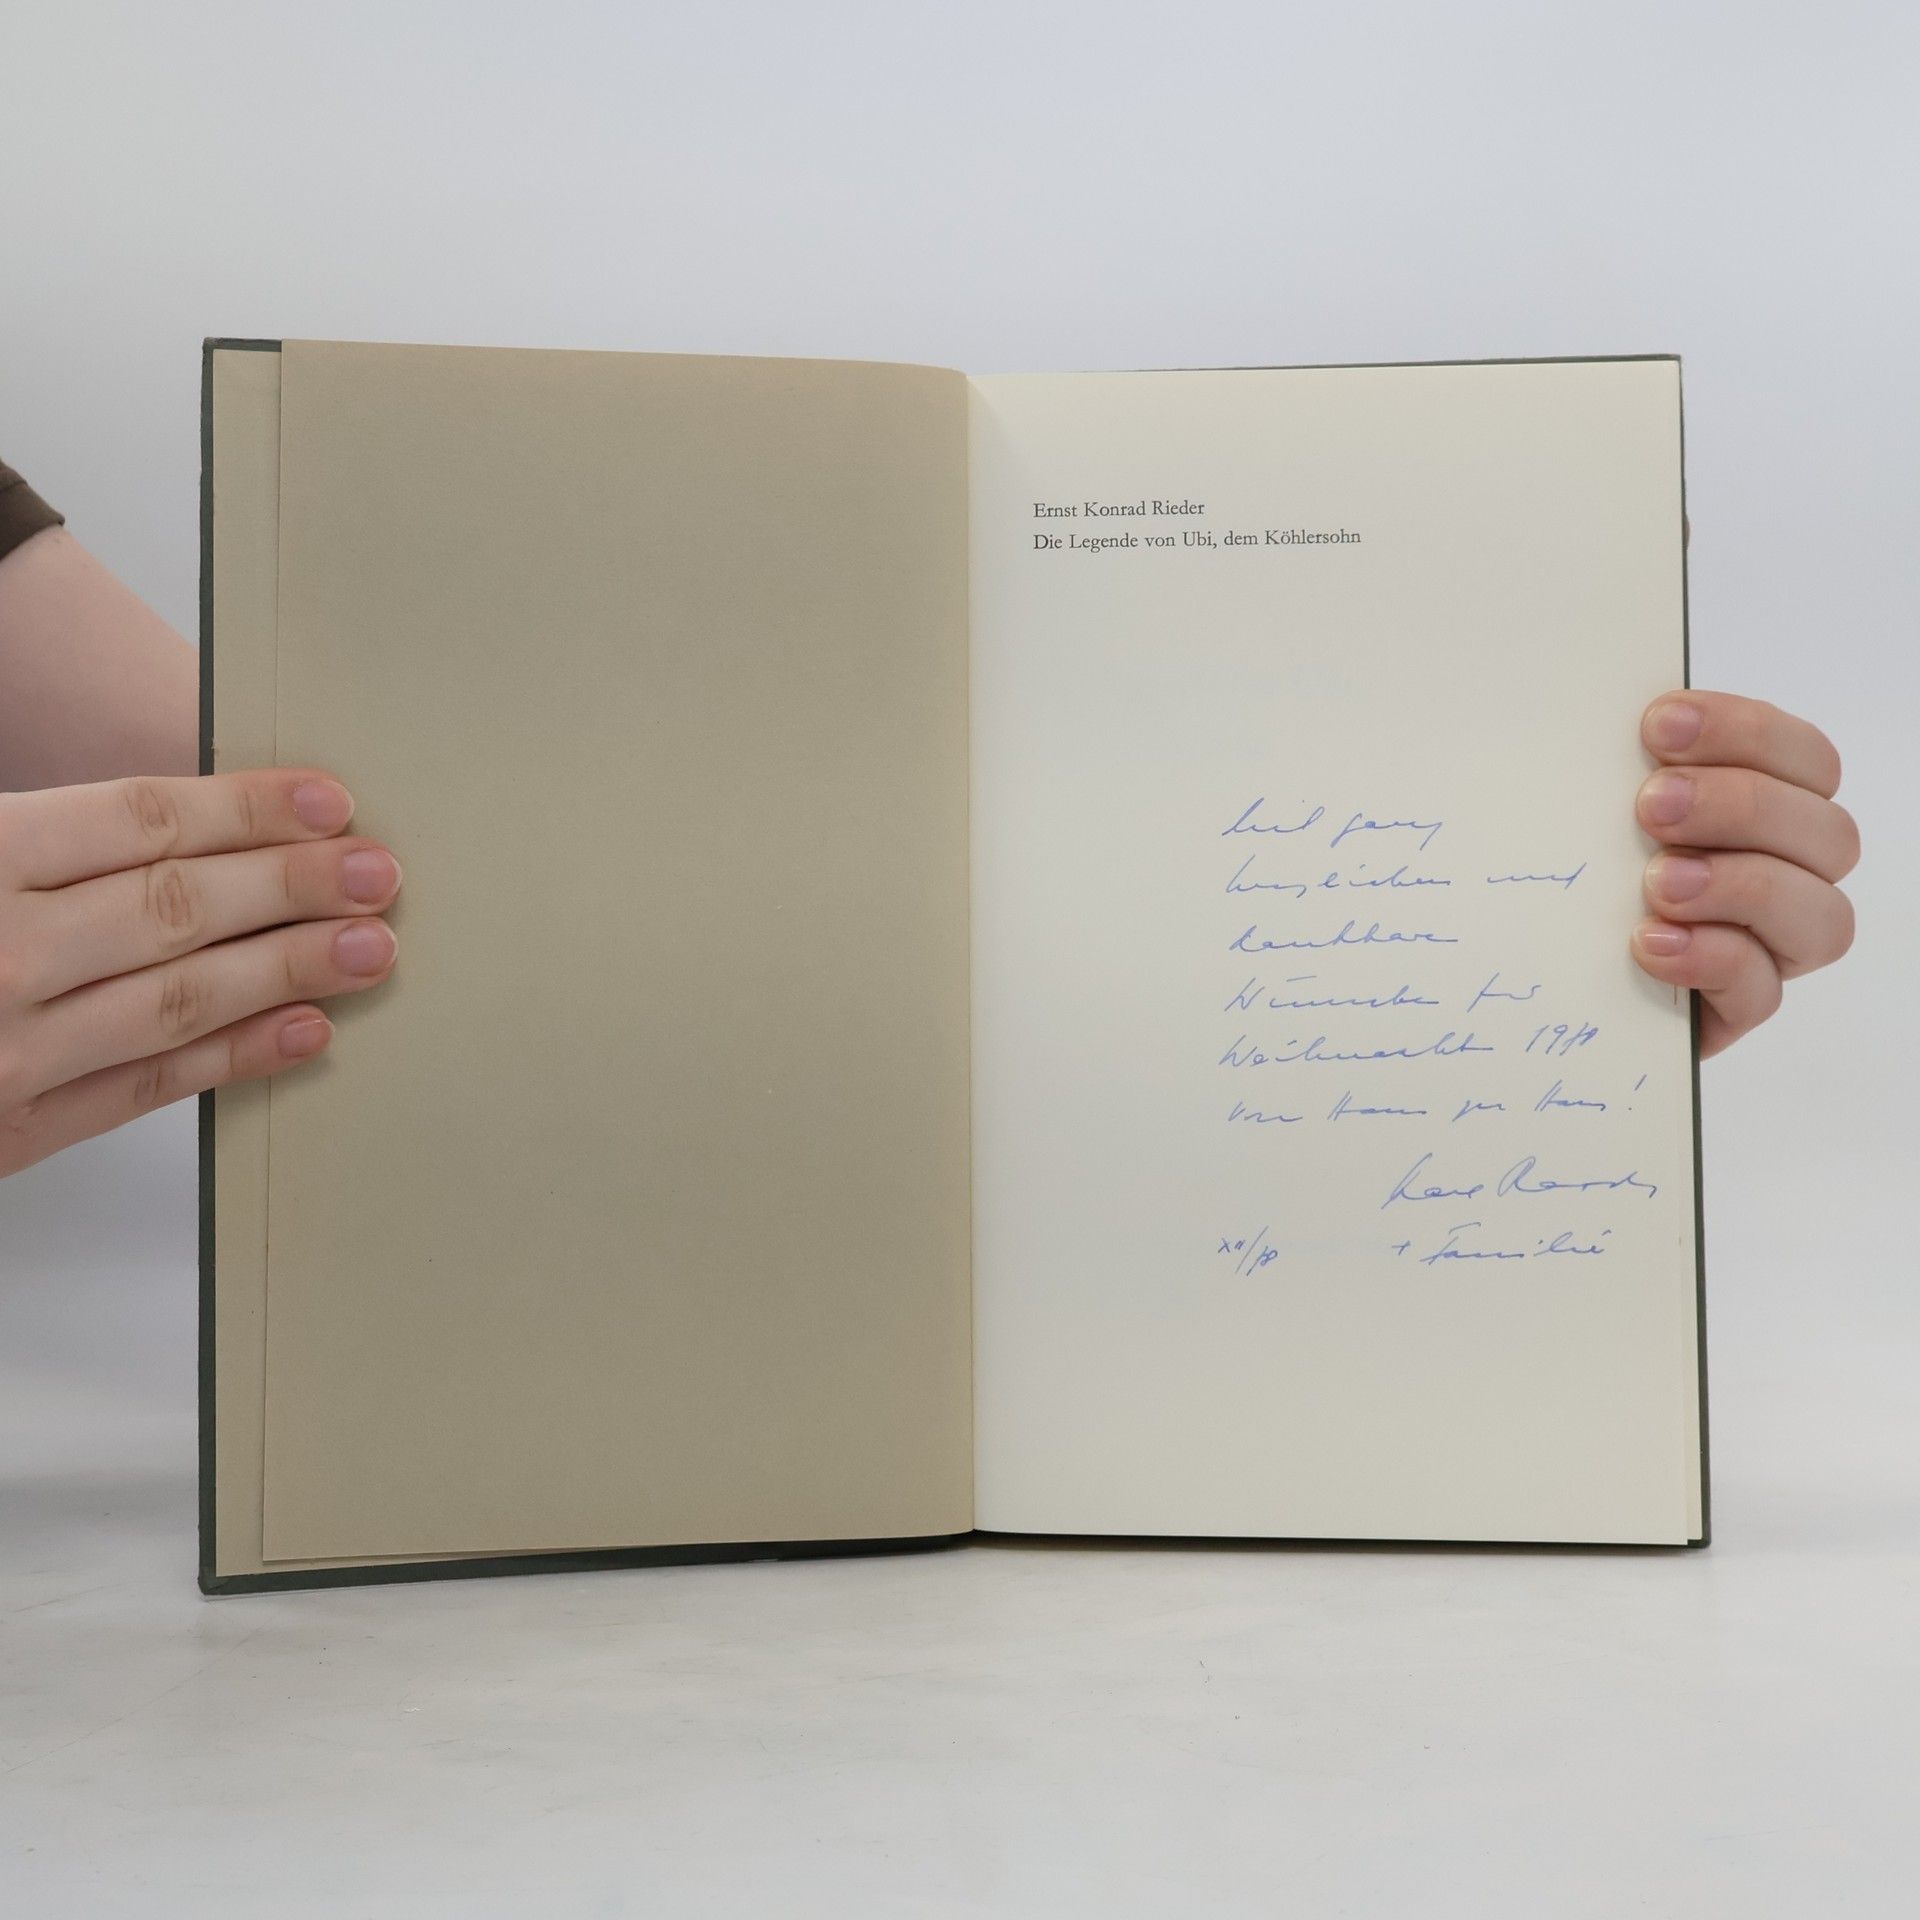 Ernst Konrad Rieder
Die Legende von Ubi, dem Köhlersohn
Mit ganz
herzlichen und
dankbaren
Wünschen für
Weihnachten
von Haus zu Haus!
+ Familie